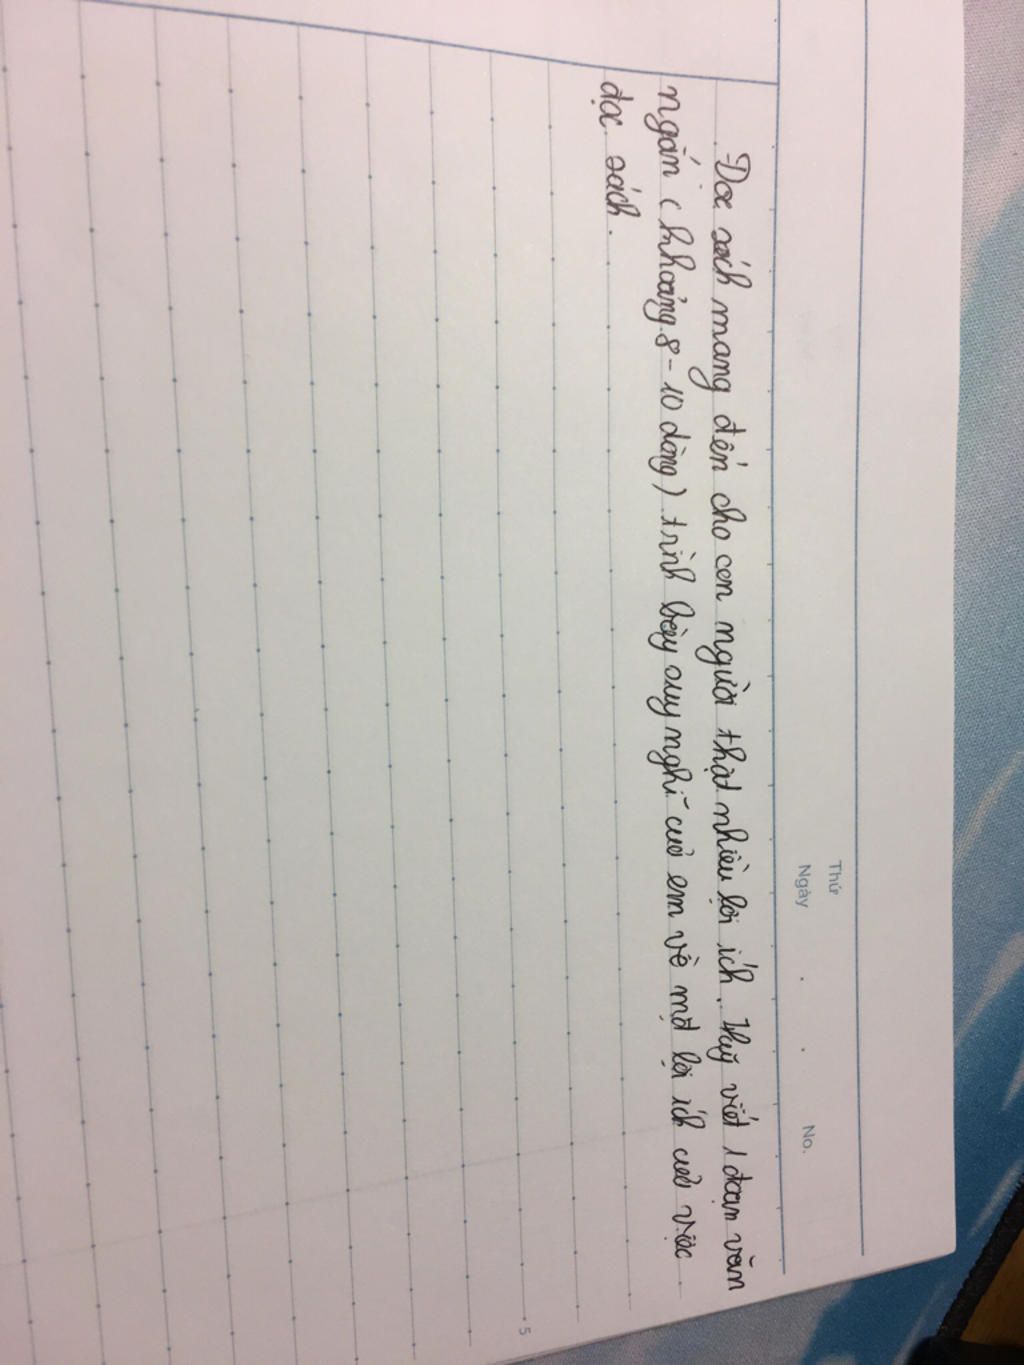 Thứ
Ngày . . No.
Đọc sách mang đến cho con người thật nhiều lợi ích. Hãy viết 1 đoạn văn
ngắn (khoảng 8-10 dòng) trình bày suy nghĩ của em về một lợi ích của việc
đọc sách.
5